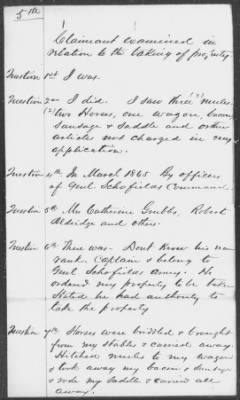 5th
Claimant examined in
relation to the taking of property.
Question 1st I was.
Question 2nd I did. I saw three (3) mules
(2) two Horses, one wagon, bacon,
Sausage & Saddle and other
articles not charged in my
application.
Question 4th In March 1865 By officers
of Genl Schofields Command.
Question 5th Mrs Catherine Grubbs, Robert
Aldridge and others.
Question 6th There was. Dont know his name
rank Captain & belong to
Genl Schofields Army. He
ordered my property to be taken
Stated he had authority to
take the property
Question 7th Horses were bridled & brought
from my Stables & carried away.
Hitched mules to my wagon
& took away my bacon & Sausage
& rode my Saddle & carried all
away.